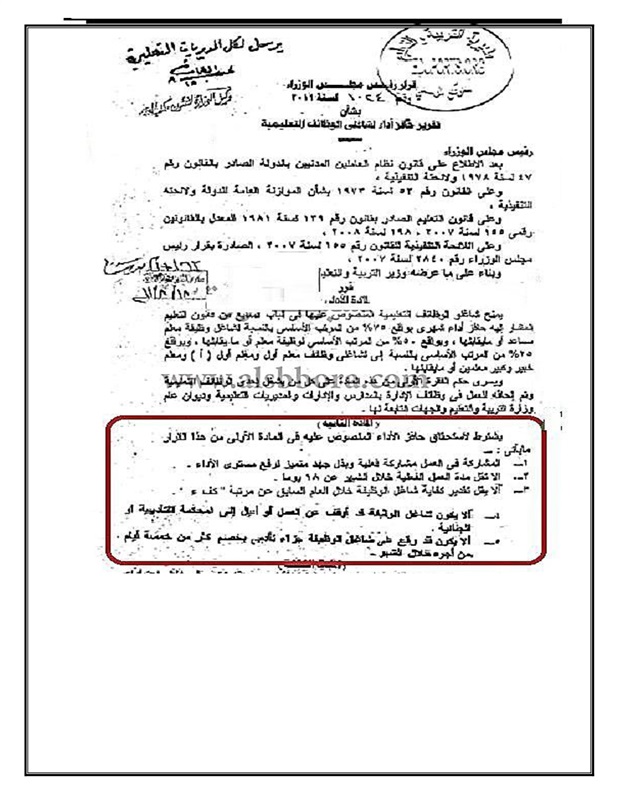 يرسل لكل المديريات التعليمية
قرار رئيس مجلس الوزراء
رقم ١٠٢٤ لسنة ٢٠١١
بشأن
تقرير حافز أداء لشاغلى الوظائف التعليمية
رئيس مجلس الوزراء
بعد الاطلاع على قانون نظام العاملين المدنيين بالدولة الصادر بالقانون رقم
٤٧ لسنة ١٩٧٨ ولائحته التنفيذية ،
وعلى القانون رقم ٥٣ لسنة ١٩٧٣ بشأن الموازنة العامة للدولة ولائحته
التنفيذية ،
وعلى قانون التعليم الصادر بقانون رقم ١٣٩ لسنة ١٩٨١ المعدل بالقانونين
رقمى ١٥٥ لسنة ٢٠٠٧ ، ١٩٨ لسنة ٢٠٠٨ ،
وعلى اللائحة التنفيذية للقانون رقم ١٥٥ لسنة ٢٠٠٧ ، الصادرة بقرار رئيس
مجلس الوزراء رقم ٢٨٤٠ لسنة ٢٠٠٧ ،
وبناء على ما عرضه وزير التربية والتعليم
قرر
المادة الأولى
يمنح شاغلو الوظائف التعليمية المنصوص عليها فى الباب السابع من قانون التعليم
المشار إليه حافز أداء شهرى بواقع ٧٥% من المرتب الأساسى بالنسبة لشاغل وظيفة معلم
مساعد أو مايقابلها ، وبواقع ٥٠% من المرتب الأساسى لوظيفة معلم أو ما يقابلها ، وبواقع
٢٥% من المرتب الأساسى بالنسبة إلى شاغلى وظائف معلم أول ومعلم أول ( أ ) ومعلم
خبير وكبير معلمين أو مايقابلها .
ويسرى حكم الفقرة الأولى من هذه المادة على كل من يشغل إحدى الوظائف التعليمية
وتم إلحاقه للعمل فى وظائف الإدارة بالمدارس والإدارات والمديريات التعليمية وديوان عام
وزارة التربية والتعليم والجهات التابعة لها .
www.alsbbora.com
(المادة الثانية)
يشترط لاستحقاق حافز الأداء المنصوص عليه فى المادة الأولى من هذا القرار
مايأتى :
١- المشاركة فى العمل مشاركة فعلية وبذل جهد متميز لرفع مستوى الأداء .
٢- ألا تقل مدة العمل الفعلية خلال الشهر عن ١٨ يوما .
٣- ألا يقل تقدير كفاية شاغل الوظيفة خلال العام السابق عن مرتبة " كفء "
٤- ألا يكون شاغل الوظيفة قد أوقف عن العمل أو أحيل إلى المحاكمة التأديبية أو
الجنائية .
٥- ألا يكون قد وقع على شاغل الوظيفة جزاء تأديبى بخصم أكثر من خمسة أيام
من أجره خلال الشهر .